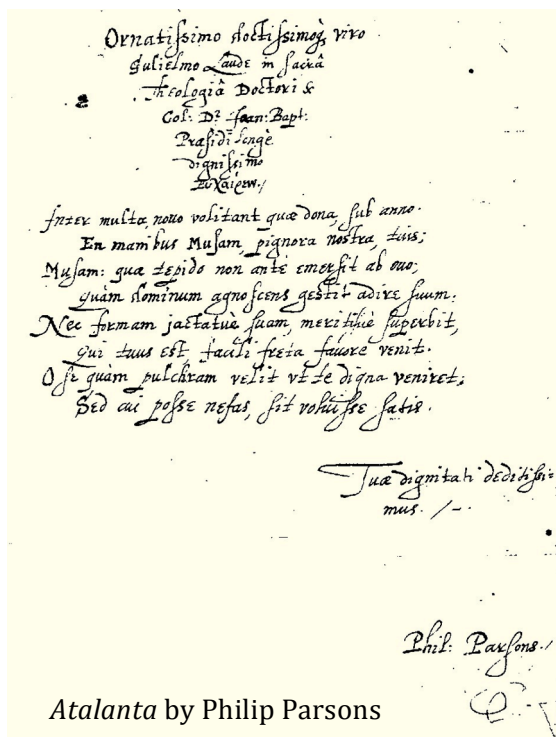 Ornatissimo doctissimoq; viro
Gulielmo Laude in sacrâ
Theologiâ Doctori &
Col: Dī Joan: Bapt:
Præsidi longè
dignissimo
Ευχαίρειν./
Inter multa, nouo volitant quæ dona, sub anno.
En manibus Musam pignora nostra, tuis;
Musam: quæ tepido non antè emersit ab ouo;
quàm dominum agnoscens gestit adire suum.
Nec formam jactatuè suam, meritisuè superbit,
qui tuus est, tantùm freta fauore venit.
O se quàm pulchram velit vt te digna veniret;
Sed cui posse nefas, sit voluisse satis.
Tuæ dignitati deditissi=
mus. /-.
Phil: Parsons./
Atalanta by Philip Parsons